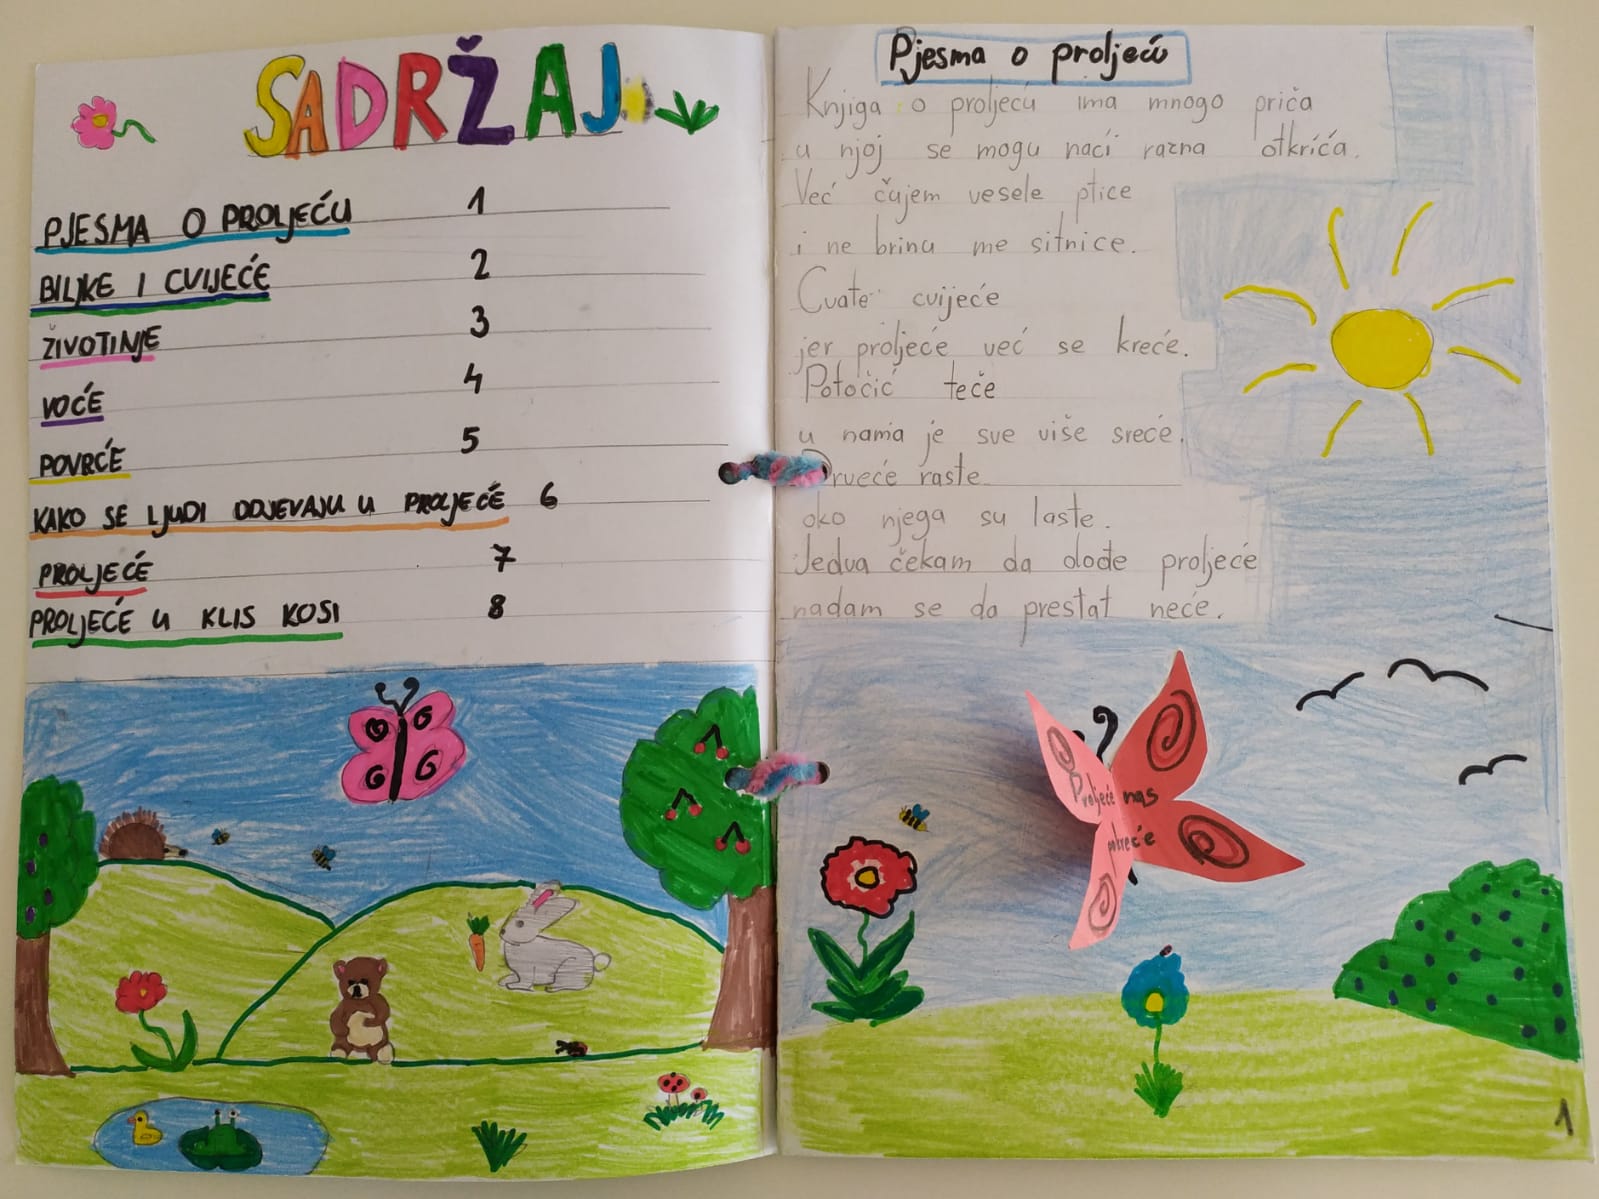 SADRŽAJ
PJESMA O PROLJEĆU 1
BILJKE I CVIJEĆE 2
ŽIVOTINJE 3
VOĆE 4
POVRĆE 5
KAKO SE LJUDI ODJEVAJU U PROLJEĆE 6
PROLJEĆE 7
PROLJEĆE U KLIS KOSI 8
Pjesma o proljeću
Knjiga o proljeću ima mnogo priča
u njoj se mogu naći razna otkrića.
Već čujem vesele ptice
i ne brinu me sitnice.
Cvate cvijeće
jer proljeće već se kreće.
Potočić teče
u nama je sve više sreće.
Drveće raste
oko njega su laste.
Jedva čekam da dođe proljeće
nadam se da prestat neće.
Proljeće nas
pokreće
1